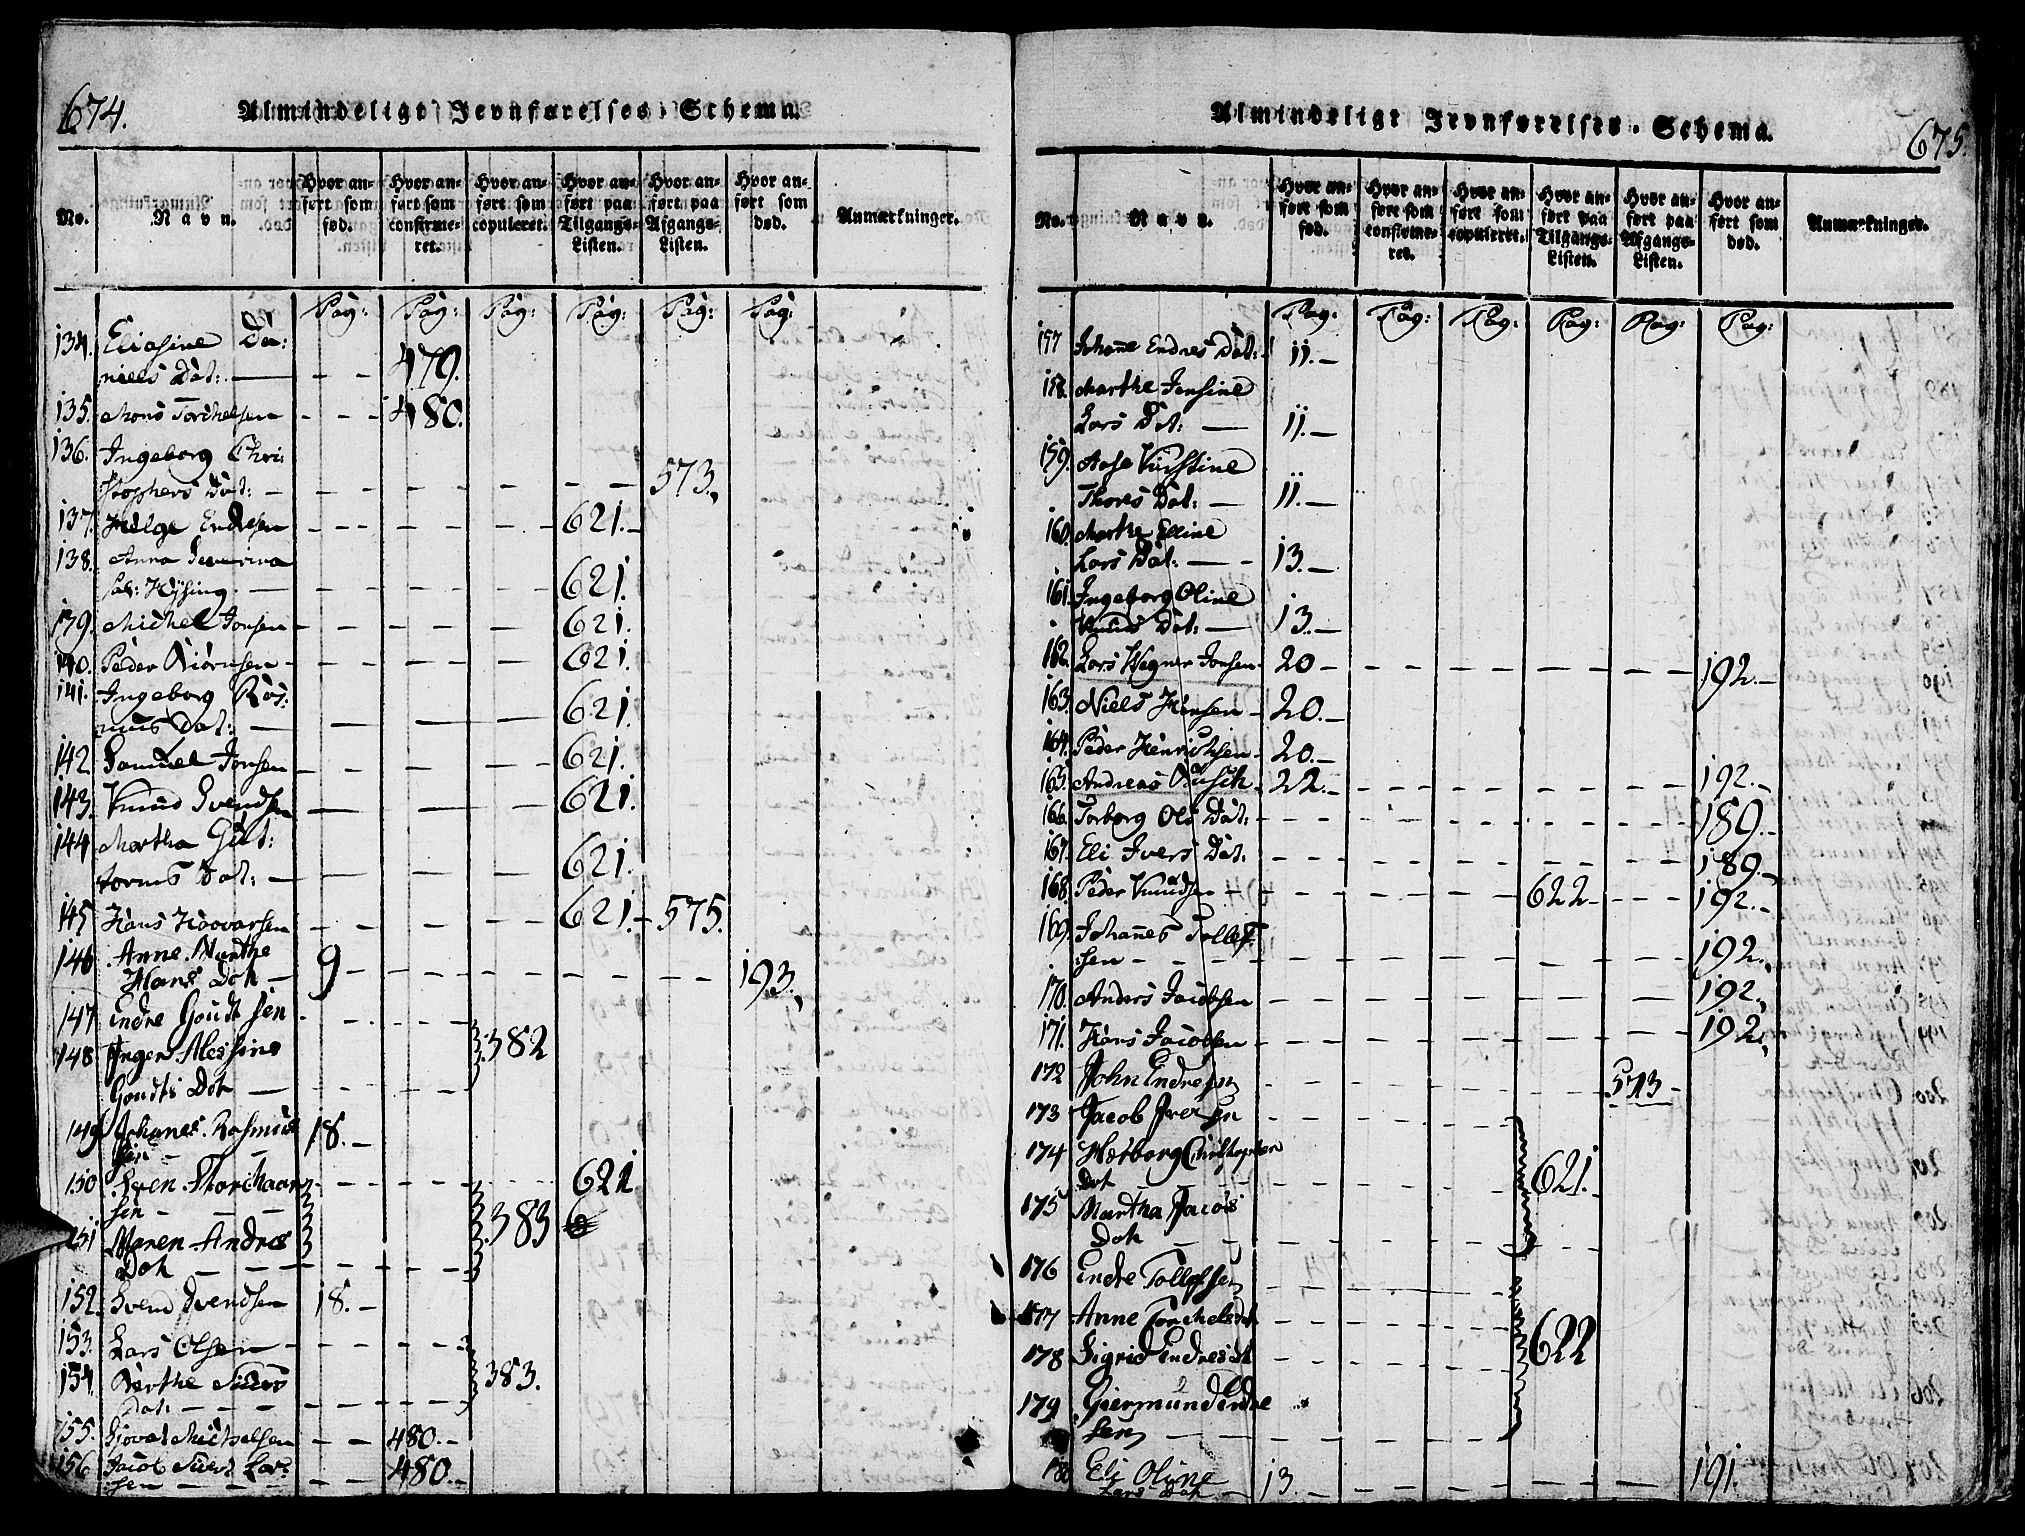 674.
Almindeligt Jevnførelses-Schema.
No.
Navn.
Hvor an-
ført som
fød.
Hvor an-
ført som
confirme-
ret.
Hvor an-
ført som
copuleret.
Hvor an-
ført paa
Tilgangs-
Listen.
Hvor an-
ført paa
Afgangs-
Listen.
Hvor an-
ført som
død.
Anmærkninger.
Pag: Pag: Pag: Pag: Pag: Pag:
134. Eliasine Da:
niels Dat: — - - 479.
135. Mons Torchelsen - - - 480.
136. Ingeborg Chri:
stophers Dat: - - - - - 573.
137. Helge Endresen - - - - 621.-
138. Anna Severina
Hysing — 621.
139. Michel Jonsen - - - - 621.
140. Peder Biørnsen - - - - 621.
141. Ingeborg Ras:
mus Dat: - — — - 621.
142. Samuel Jonsen - - - - 621.
143. Knud Svendsen — — - 621.
144. Martha Gut:
torms Dat: — — - 621.
145. Hans Haavorsen - - - - 621.- 575.
146. Anne Marthe
Hans Dot - 9 - - - - - 193.
147. Endre Goudt sen - - - -
382
148. Inger Alessine
Goudts Dot — - - - -
149. Johanes Rasmus 18. -
sen - -
150 Sven Thorchaar - - - - - 621
sen - - -
383
151 Maren Andres
Dot - - - - - - -
152. Svend Svendsen 18. -
153. Lars Olsen - - - - -
383.
154. Berthe Siuers
Dat: - - - - - -
155. Siovat Michelsen - - 480.-
156 Jacob Siuert Lar:
sen - - - - - 480.-
675.
Almindeligt Jevnførelses-Schema.
No.
Navn.
Hvor an-
ført som
fød.
Hvor an-
ført som
confirme-
ret.
Hvor an-
ført som
copuleret.
Hvor an-
ført paa
Tilgangs-
Listen.
Hvor an-
ført paa
Afgangs-
Listen.
Hvor an-
ført som
død.
Anmærkninger.
Pag: Pag: Pag: Pag: Pag: Pag:
157 Johanne Endres Dat: 11.-
158. Marthe Jensine
Lars Dat: — 11.-
159. Aase Kirstine
Thores Dat: - 11.-
160. Marthe Elline
Lars Dat: - - 13.-
161. Ingeborg Oline
Knuds Dat: — 13.-
162. Lars Wegner Jonsen 20 - - - - - 192.-
163. Niels Hansen - 20.-
164. Peder Henrichsen - 20.-
165. Andreas Busch - 22.- - - - - 192.-
166. Torborg Ols Dat: - - - - - - 189.-
167. Eli Ivers Dat: - - - - - - 189.-
168. Peder Knudsen - - - - 622 - - 192.-
169. Johannes Tollef:
sen - - - - - - - 192.
170. Anders Jacobsen - - - - - 192.
171. Hans Jacobsen - - - - - 192.
172 John Endresen - - - - 573 -
173 Jacob Iversen - - -
174 Herborg Christopher
Dot - - - 621.-
175 Martha Jacobs
Dot - - - - -
176 Endre Tollefsen - - -
177 Anne Torchelsdot - - -
622
178 Sigrid Endresdt - - -
179 Giermund Endre
sen - - - - -
180 Eli Oline 13. - - - - 191.
Lars Dot